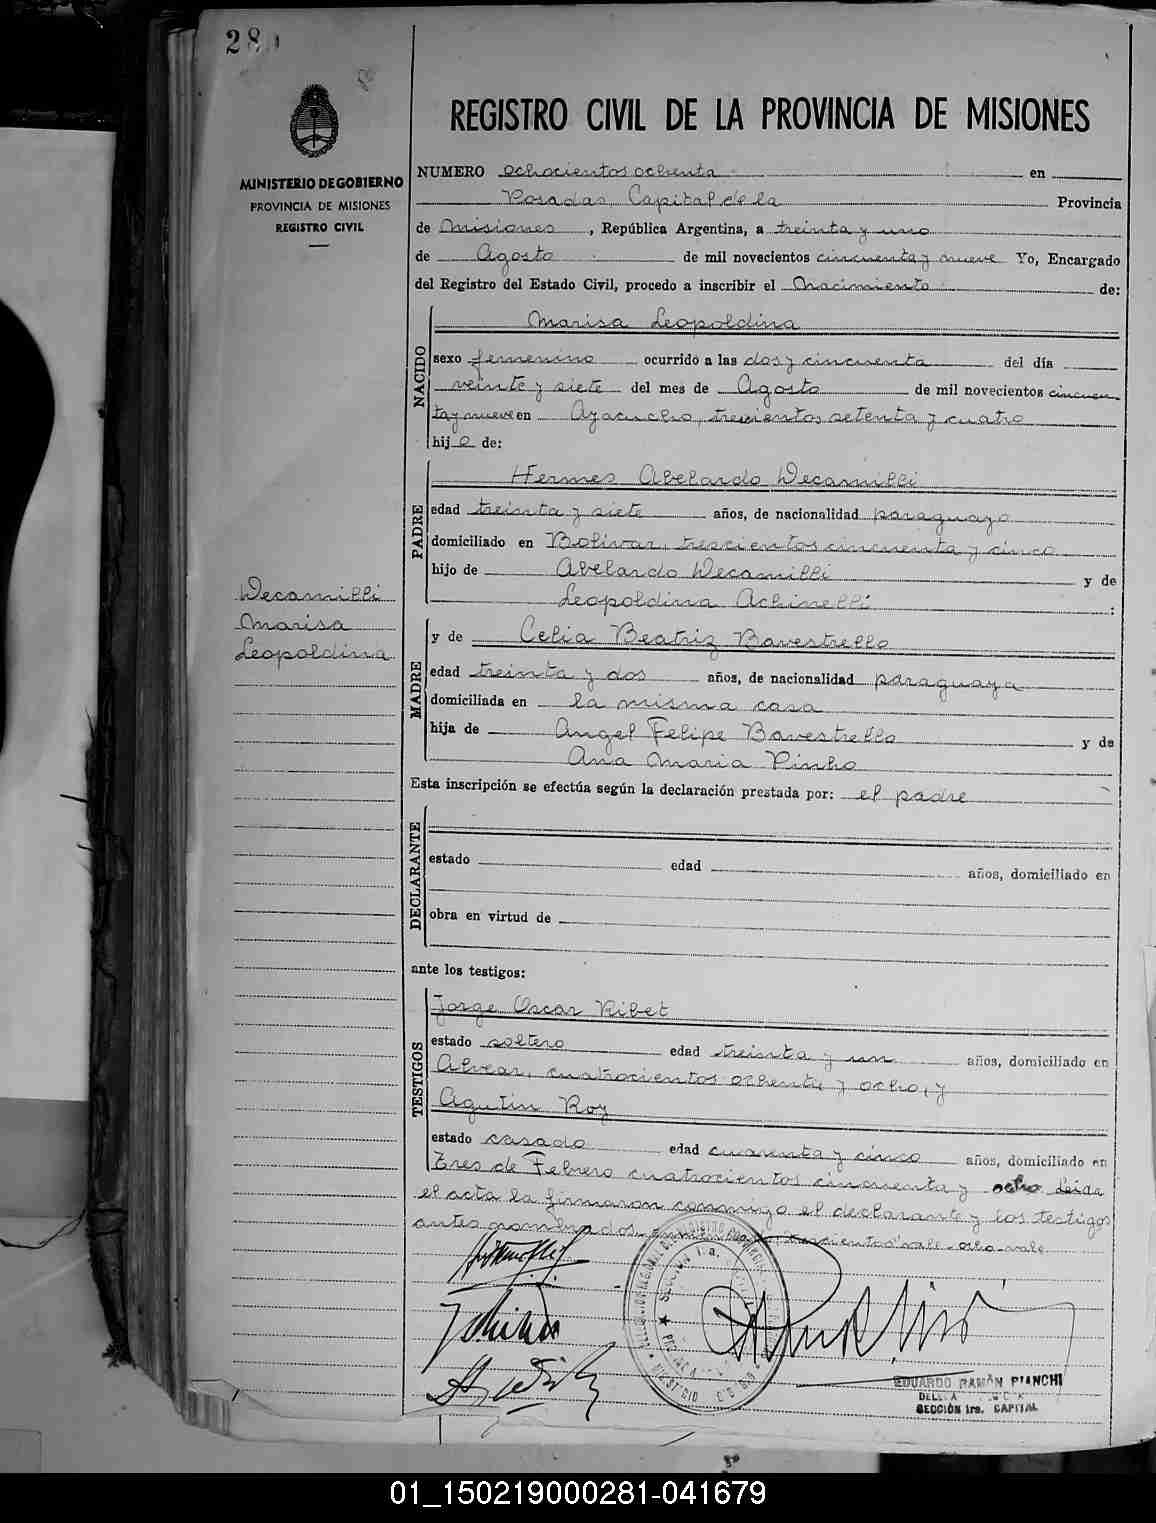 28
MINISTERIO DE GOBIERNO
PROVINCIA DE MISIONES
REGISTRO CIVIL
REGISTRO CIVIL DE LA PROVINCIA DE MISIONES
NUMERO ochocientos ochenta en
Posadas, Capital de la Provincia
de Misiones, República Argentina, a treinta y uno
de Agosto de mil novecientos cincuenta y nueve Yo, Encargado
del Registro del Estado Civil, procedo a inscribir el Nacimiento de:
NACIDO
Marisa Leopoldina
sexo femenino ocurrido a las dos y cincuenta del día
veinte y siete del mes de Agosto de mil novecientos cincuen
ta y nueve en Ayacucho, trescientos setenta y cuatro
hija de:
PADRE
Hermes Abelardo Decamilli
edad treinta y siete años, de nacionalidad paraguayo
domiciliado en Bolívar, trescientos cincuenta y cinco
hijo de Abelardo Decamilli y de
Leopoldina Achinelli :
Decamilli
Marisa
Leopoldina
MADRE
y de Celia Beatriz Bavestrello
edad treinta y dos años, de nacionalidad paraguaya
domiciliada en la misma casa
hija de Angel Felipe Bavestrello y de
Ana Maria Pinho
Esta inscripción se efectúa según la declaración prestada por: el padre
DECLARANTE
estado edad años, domiciliado en
obra en virtud de
ante los testigos:
TESTIGOS
Jorge Oscar Ribet
estado soltero edad treinta y un años, domiciliado en
Alvear, cuatrocientos ochenta y ocho, y
Agutin Roy
estado casado edad cuarenta y cinco años, domiciliado en
Tres de Febrero cuatrocientos cincuenta y ocho Leida
el acta la firmaron conmigo el declarante y los testigos
antes nombrados. trescientos "vale - ocho - vale
SECCION 1a.
EDUARDO RAMÓN PIANCHI
SECCIÓN 1ra. CAPITAL
01_150219000281-041679